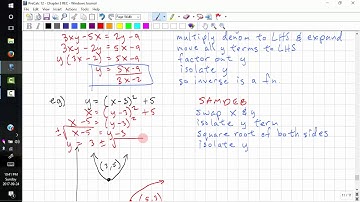 PreCalc 12 - Chapter 2 REC - Windows Journal
3xy - 5x = 2y - 9
3xy - 2y = 5x - 9
y (3x - 2) = 5x - 9
y = 5x - 9
3x - 2
multiply denom to LHS & expand
move all y terms to LHS
factor out y
isolate y
so inverse is a fn
eg) y = (x - 3)² + 5
x = (y - 3)² + 5
x - 5 = (y - 3)²
± √x - 5 = y - 3
y = 3 ± √
(3,5)
SAMDEB
swap x & y
isolate y term
square root of both sides
isolate y
(5,3)
11:41 AM
Sunday
2017-09-24